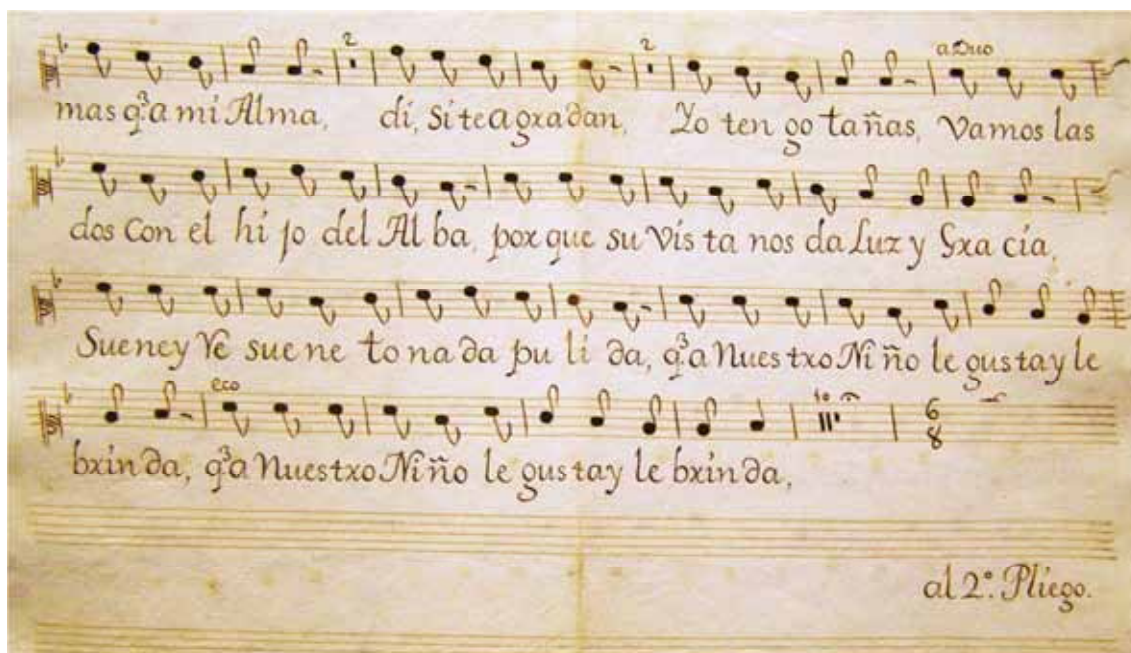 2 2 a Duo
mas q.ª a mi Alma, di, Si te a gra dan, Yo ten go ta ñas, Vamos las
dos Con el hi jo del Al ba, por que su Vis ta nos da Luz y Gra cia,
Sue ne y Ve sue ne to na da pu li da, q.ª a Nues tro Ni ño le gus ta y le
eco 10 6 8
brin da, q.ª a Nues tro Ni ño le gus ta y le brin da,
al 2.º Pliego.